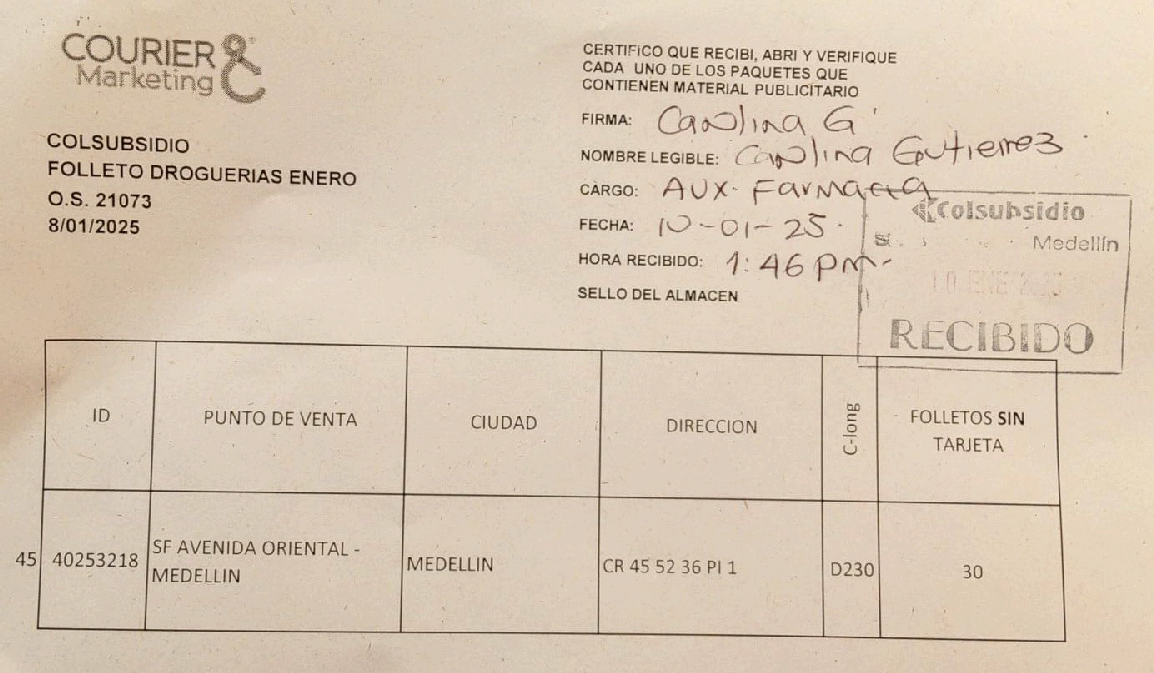 COURIER
Marketing
COLSUBSIDIO
FOLLETO DROGUERIAS ENERO
O.S. 21073
8/01/2025
CERTIFICO QUE RECIBI, ABRI Y VERIFIQUE
CADA UNO DE LOS PAQUETES QUE
CONTIENEN MATERIAL PUBLICITARIO
FIRMA: Carolina G
NOMBRE LEGIBLE: Carolina Gutierrez
CARGO: AUX. Farmacia
FECHA: 10-01-25.
HORA RECIBIDO: 1:46 pm
SELLO DEL ALMACEN
Colsubsidio
Medellín
10 ENE
RECIBIDO
ID PUNTO DE VENTA CIUDAD DIRECCION C-long FOLLETOS SIN TARJETA
45 40253218 SF AVENIDA ORIENTAL - MEDELLIN MEDELLIN CR 45 52 36 PI 1 D230 30